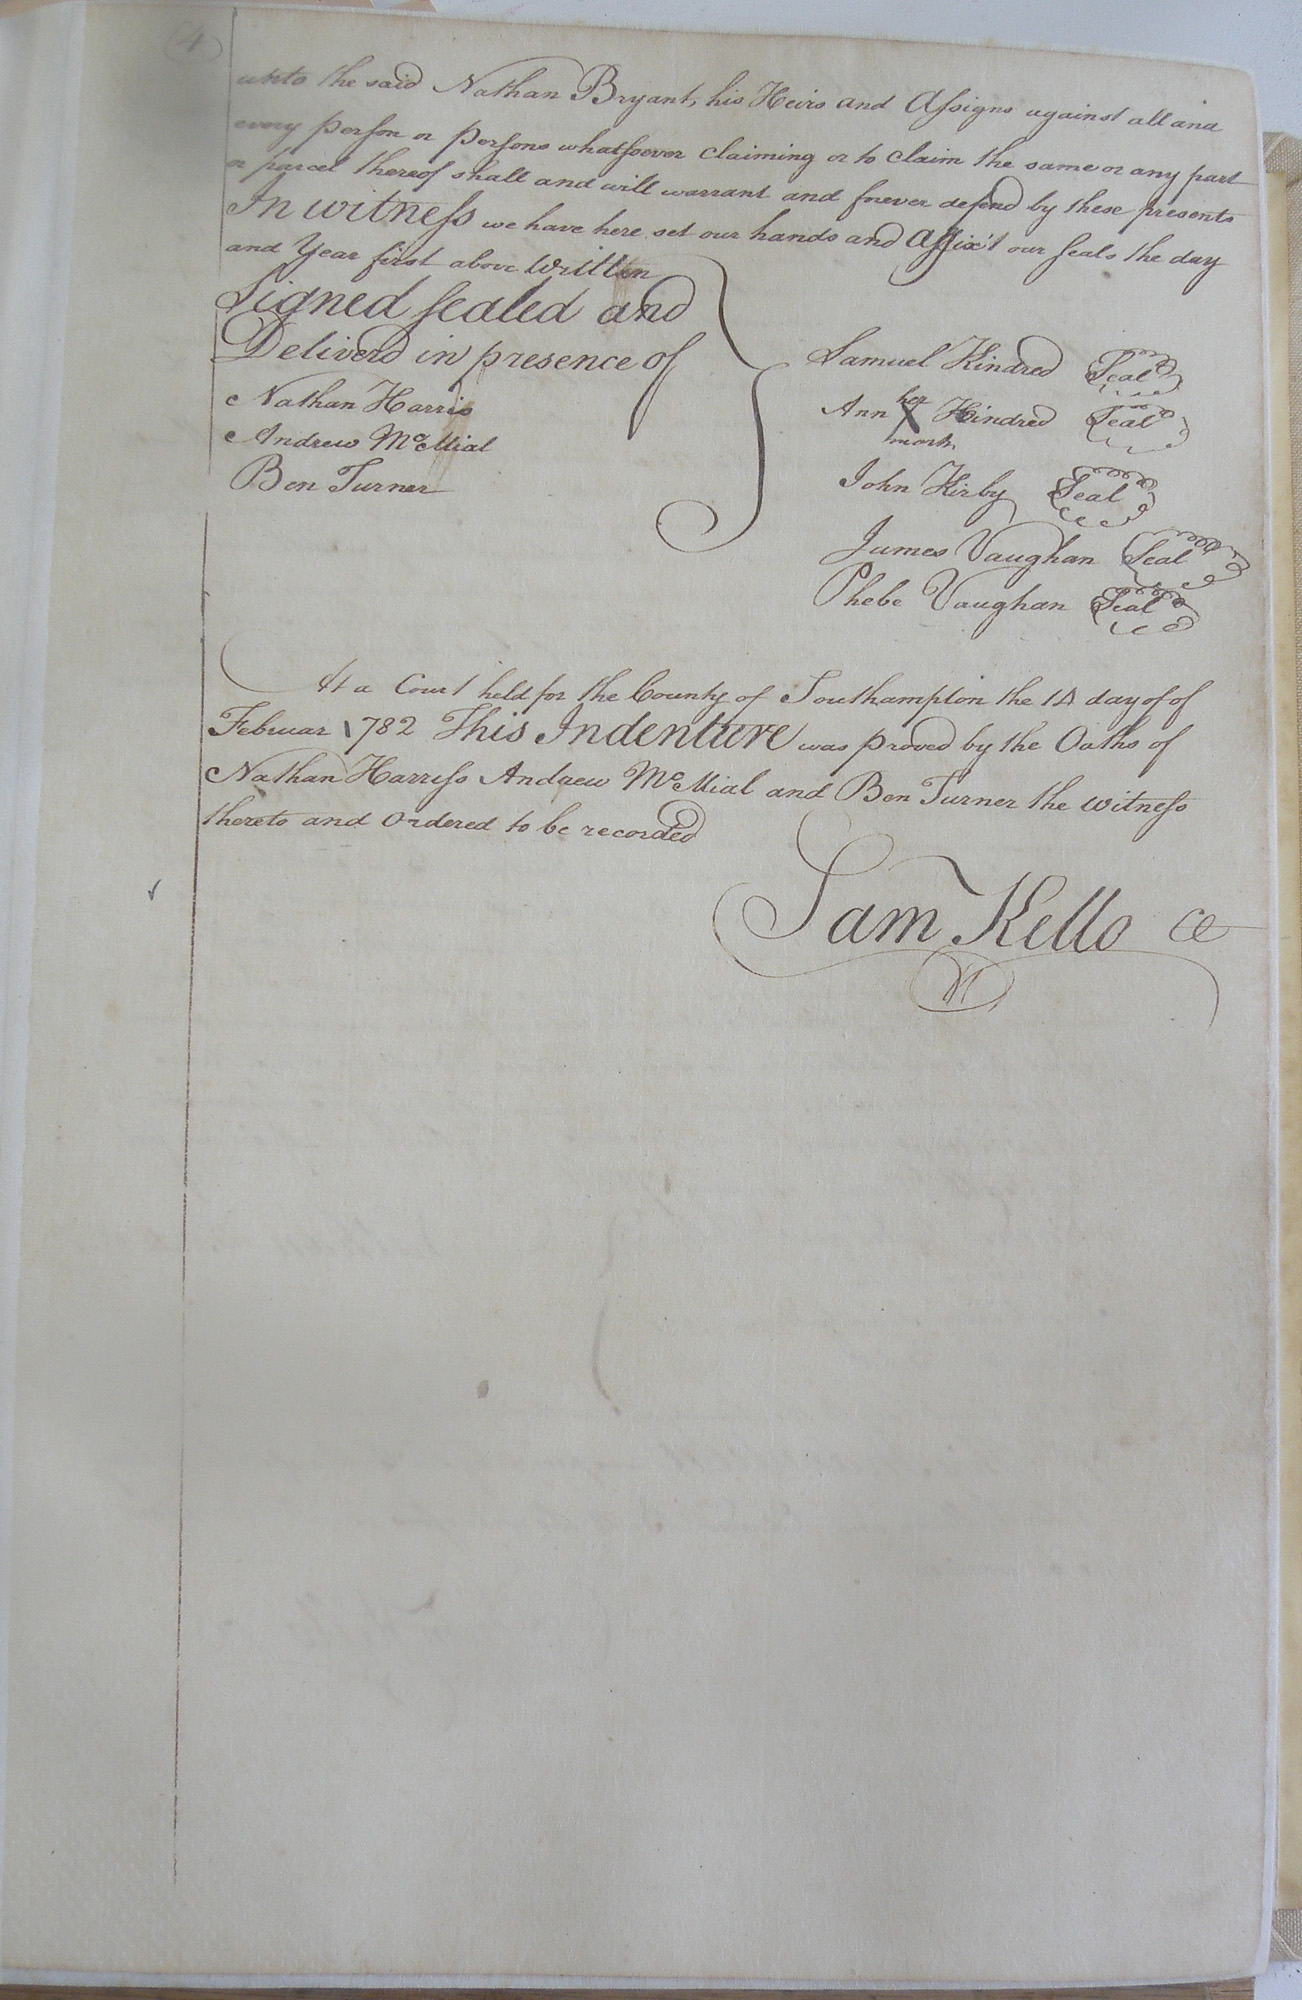 (4)
unto the said Nathan Bryant, his Heirs and Assigns against all and
every person or persons whatsoever claiming or to claim the same or any part
or parcel thereof shall and will warrant and forever defend by these presents
In witness we have here set our hands and Affix't our seals the day
and Year first above written
Signed sealed and
Deliverd in presence of
Nathan Harris
Andrew McMial
Ben Turner
Samuel Kindred Seal
Ann her X mark Kindred Seal
John Kirby Seal
James Vaughan Seal
Phebe Vaughan Seal
At a Court held for the County of Southampton the 14 day of of
Februar 1782 This Indenture was proved by the Oaths of
Nathan Harriss Andrew McMial and Ben Turner the witness
thereto and Ordered to be recorded
Sam Kello